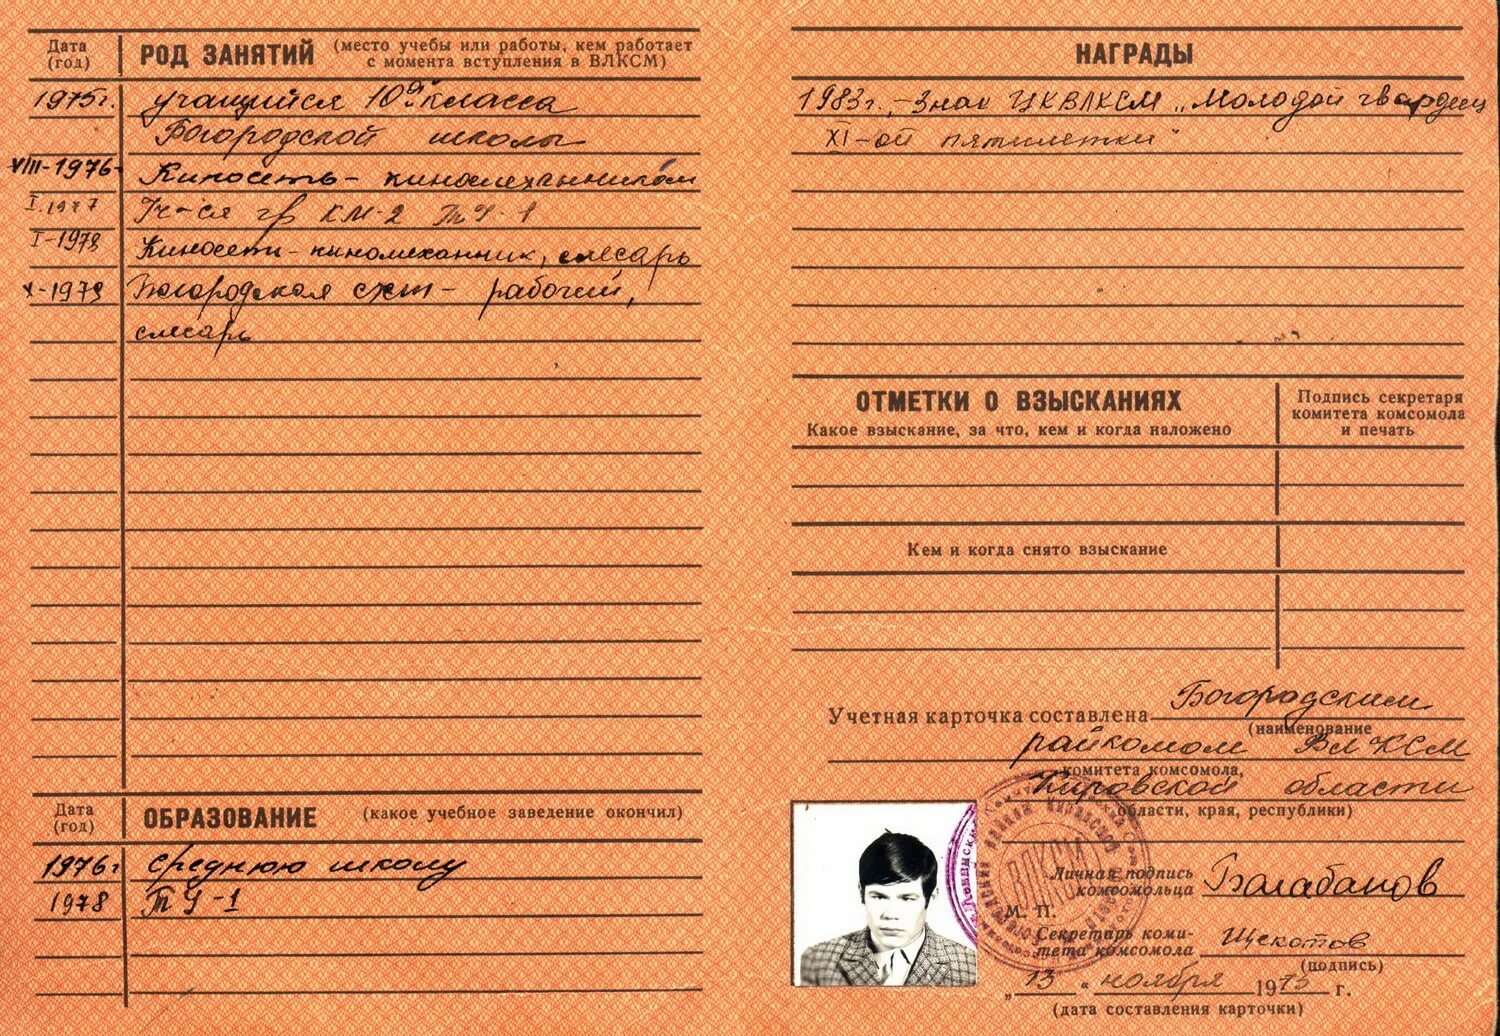 Дата (год) РОД ЗАНЯТИЙ (место учебы или работы, кем работает с момента вступления в ВЛКСМ)
1975г. учащийся 10го класса
Богородской школы
VIII-1976- Киносеть - киномеханником
I.1977 гр КМ-2 ТУ-1
I-1978 Киносети - киномеханник, слесарь
X-1979 Богородская - рабочий,
слесарь
Дата (год) ОБРАЗОВАНИЕ (какое учебное заведение окончил)
1976г среднюю школу
1978 ТУ-1
НАГРАДЫ
1983г. - Знак ЦК ВЛКСМ „Молодой гвардеец
XI-ой пятилетки"
ОТМЕТКИ О ВЗЫСКАНИЯХ
Какое взыскание, за что, кем и когда наложено
Подпись секретаря
комитета комсомола
и печать
Кем и когда снято взыскание
Учетная карточка составлена Богородским
(наименование
райкомом ВЛКСМ
комитета комсомола,
Кировской области
области, края, республики)
Личная подпись
комсомольца Балабанов
М. П.
Секретарь коми-
тета комсомола Щекотов
(подпись)
„13" ноября 1975 г.
(дата составления карточки)
ВЛКСМ